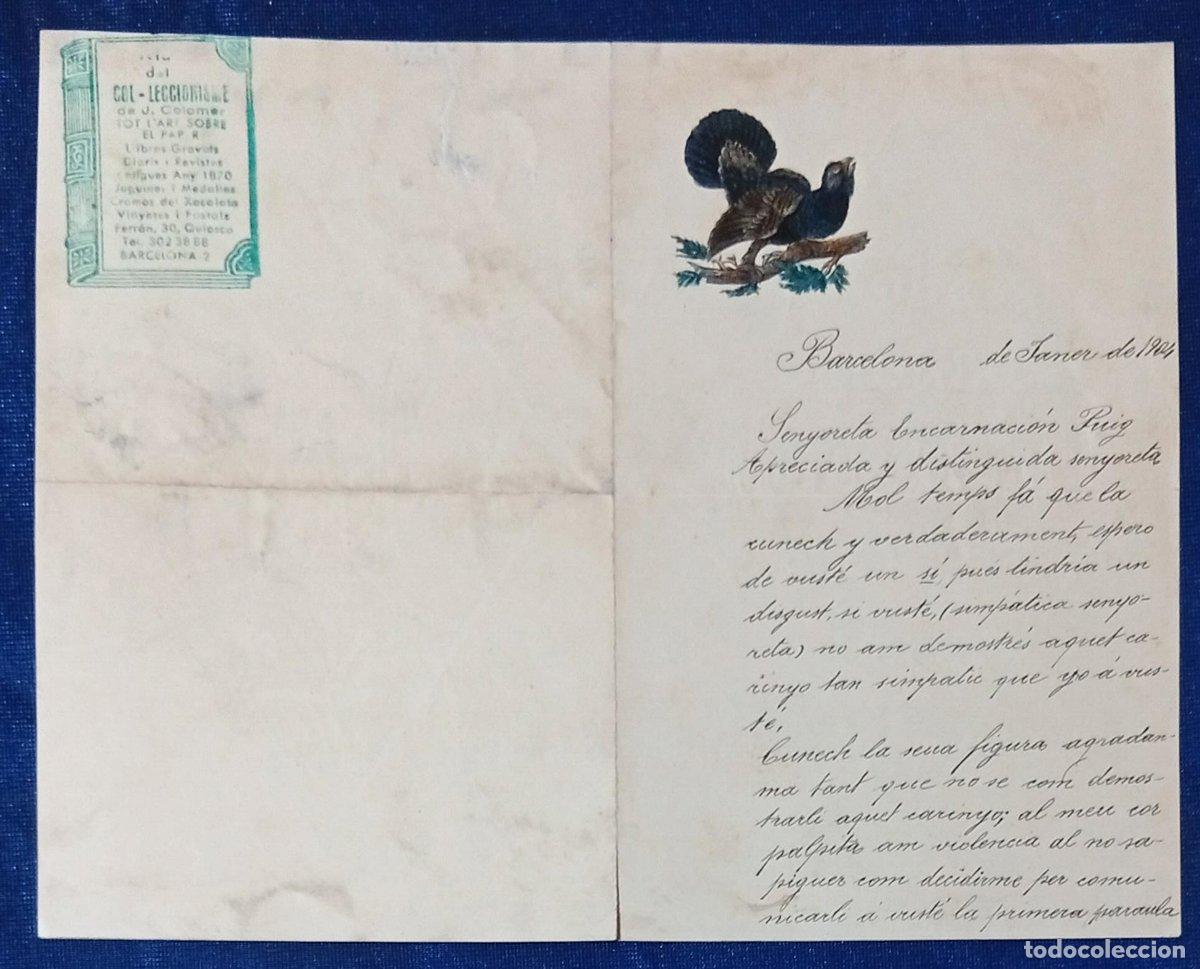 del
COL-LECCIONISME
de J. Colomer
TOT L'ART SOBRE
EL PAPER
Llibres Gravats
Diaris i Revistes
Antigues Any 1870
Juguines i Medalles
Cromos del Xocolata
Vinyetes i Postals
Ferrán, 30, Quiosco
Tel. 302 38 88
BARCELONA 2
Barcelona de Janer de 1904
Senyoreta Encarnación Puig
Apreciada y distinguida senyoreta
Mol temps fá que la
cunech y verdaderament, espero
de vusté un sí, pues tindria un
disgust, si vusté, (simpática senyo-
reta) no am demostrés aquet ca-
rinyo tan simpatic que yo á vus-
té,
Cunech la seua figura agradan-
ma tant que no se com demos-
trarli aquet carinyo; al meu cor
palpita am violencia al no sa-
piguer com decidirme per comu-
nicarli á vusté la primera paraula
todocoleccion